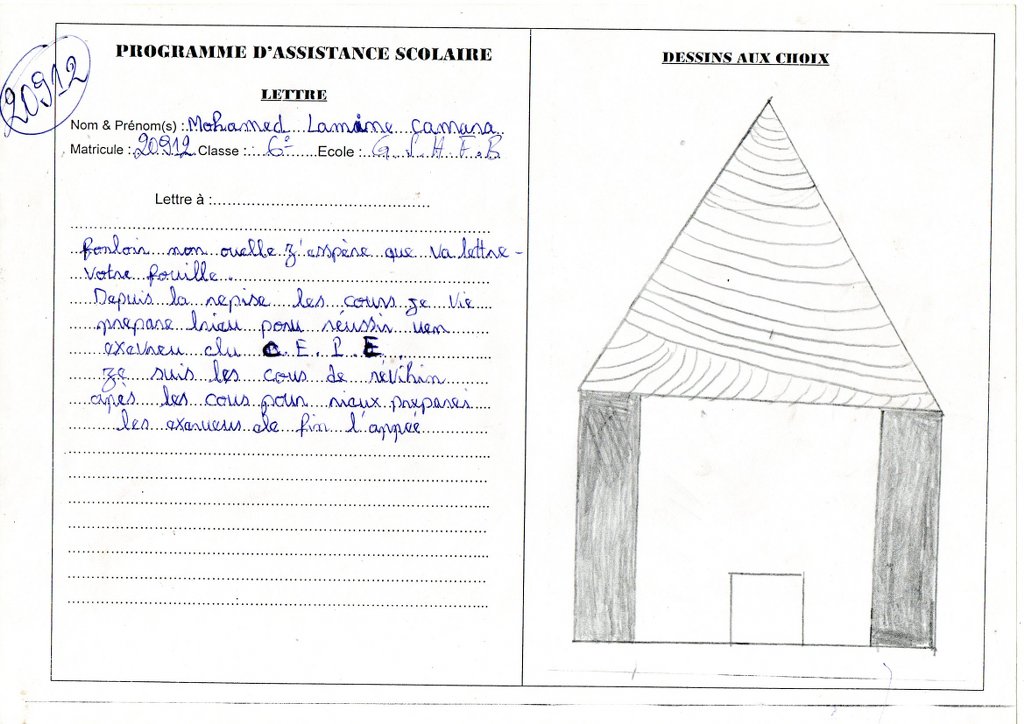 20912
PROGRAMME D'ASSISTANCE SCOLAIRE
LETTRE
Nom & Prénom(s) : Mohamed Lamine Camara
Matricule : 20912 Classe : 6e Ecole : G S H F.B
Lettre à :
bonloir mon ouelle j'aspère que va lettre
votre fouille.
Depuis la repise les cours je vie
prepare bien pour réussir
du C.E.P.E.
je suis les cous de
après les cous pour preparei
les de fin l'année
DESSINS AUX CHOIX